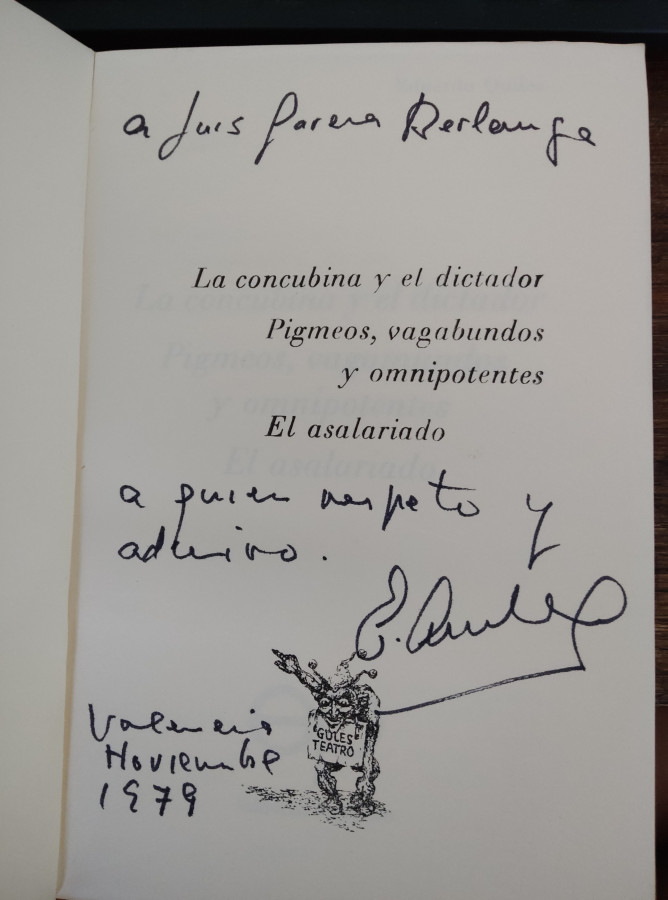 a Luis García Berlanga
La concubina y el dictador
Pigmeos, vagabundos
y omnipotentes
El asalariado
a quien respeto y
admiro.
GULES
TEATRO
Valencia
Noviembre
1979